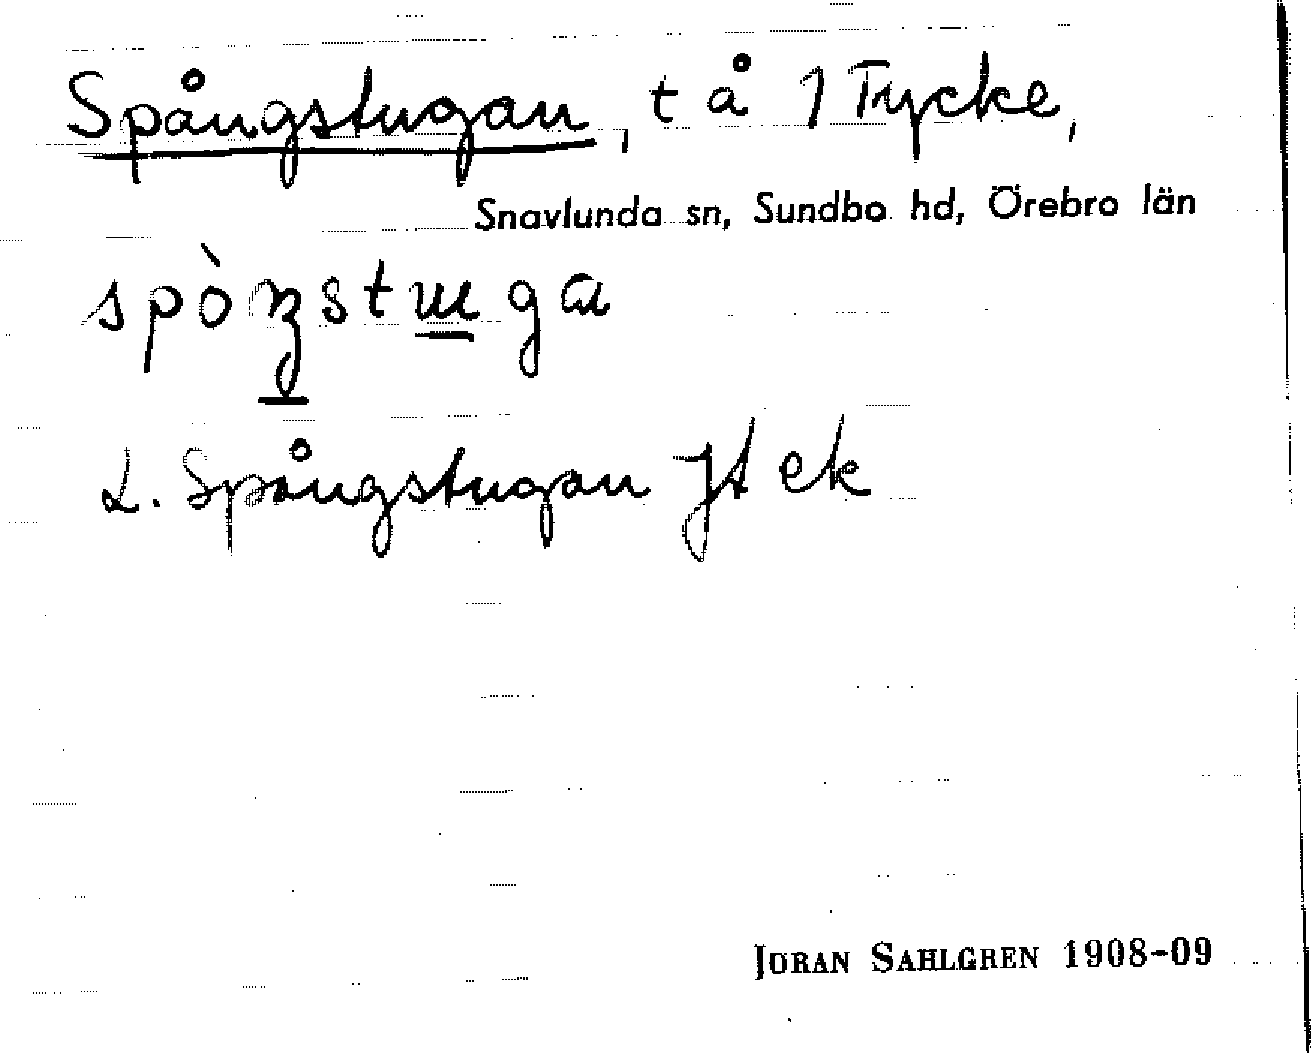 Spångstugan, t å 1 Tycke,
Snavlunda sn, Sundbo hd, Örebro län
L. Spångstugan Jt ek
JÖRAN SAHLGREN 1908-09